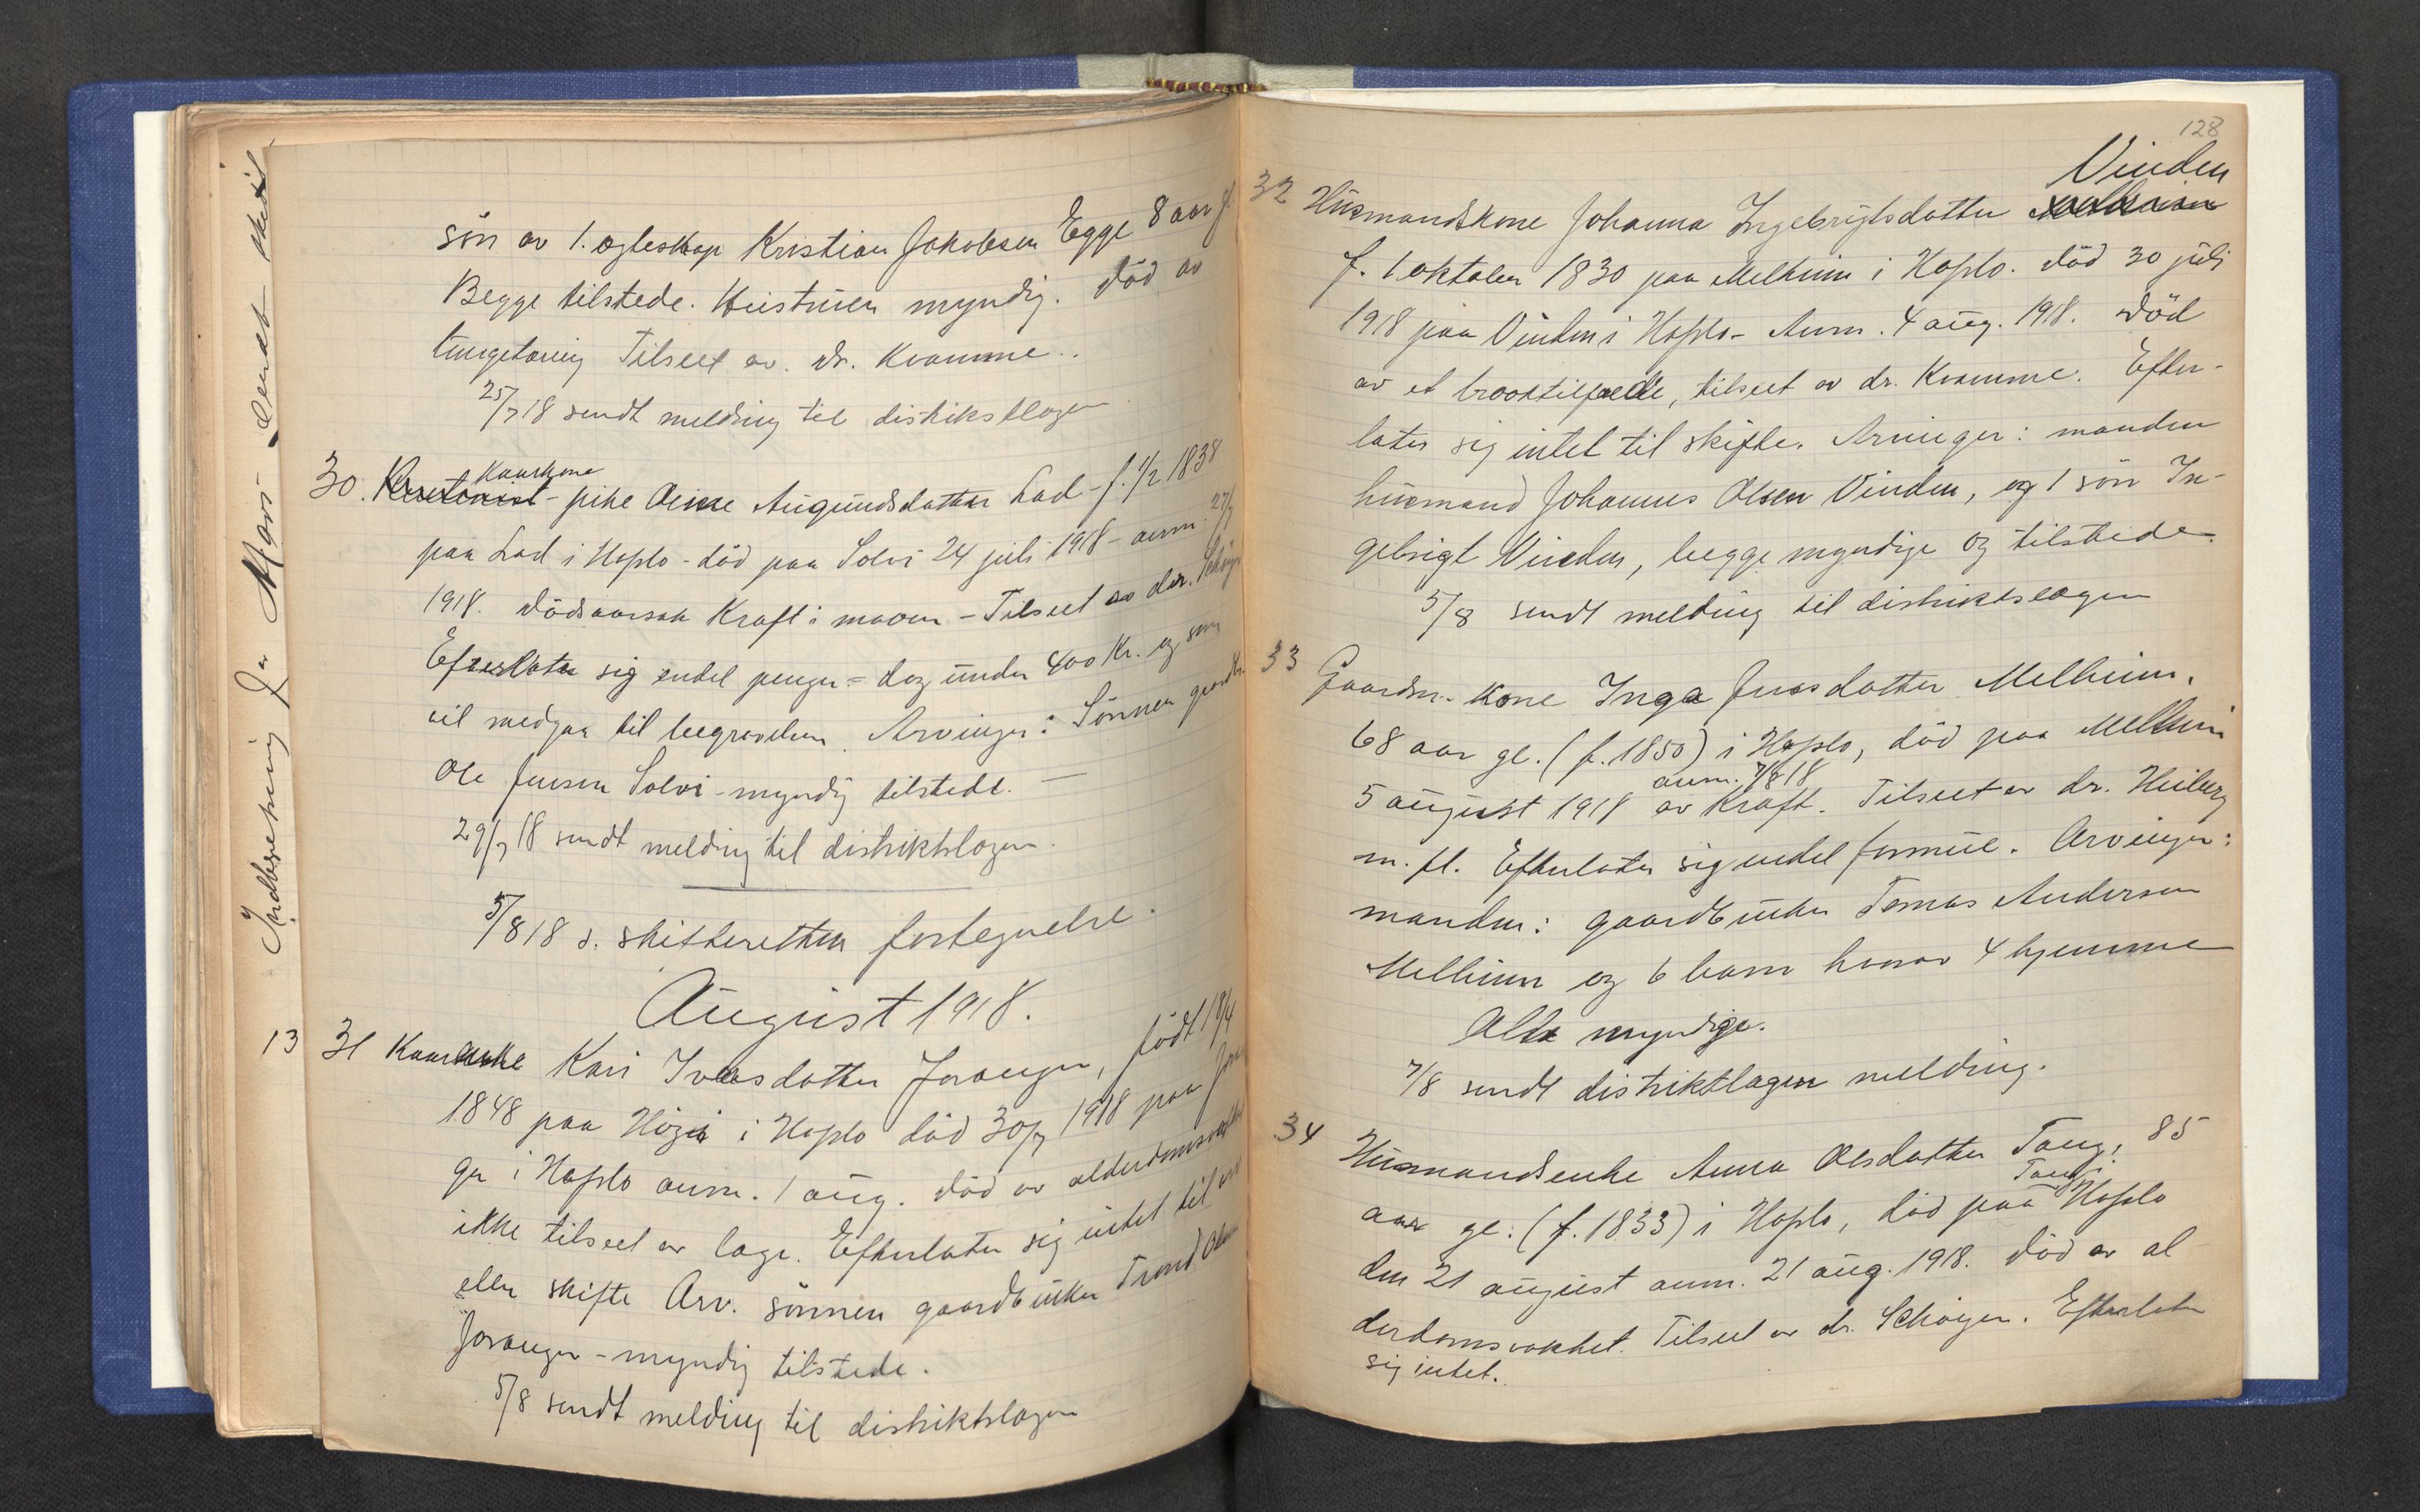 Indberetning for Mars sendt skift
søn av 1. egteskap Kristian Jakobsen Egge 8 aar g
Begge tilstede. Hustruen myndig. Død av
tungetæring Tilseet av. dr. Kvamme..
25/7 18 sendt melding til distrikslægen
Kaarkone
30. - pike Aug­undsdatter Lad - f. 1/2 1838
paa Lad i Hoplo - død paa Solvi 24 juli 1918 - anm. 27/7
1918. Dødsaarsak Kræft i maven - Tilseet av dr. Schøyen
Efterlater sig endel penger = dog under 400 Kr. og som
vil medgaa til begravelsen. Arvinger: Sønnen gaardbr
Ole Jensen Solvi - myndig tilstede. —
29/7 18 sendt melding til distriktslægen.
5/8 18 s. skifteretten fortegnelse.
August 1918.
13 31 Kaarenke Kari Iversdatter Foranger, født 18/4
1848 paa i Hoplo død 30/7 1918 paa Foran
ger i Hoplo anm. 1 aug. Død av alderdomssvakhet
ikke tilseet av læge. Efterlater sig intet til
eller skifte Arv. sønnen gaardbruker Trond Olsen
Foranger - myndig tilstede.
5/8 sendt melding til distriktslægen
128
Vinden
32 Husmandskone Johanna Ingebrigtsdatter
f. 1 oktober 1830 paa Melhuus i Hoplo. Død 30 juli
1918 paa Vinden i Hoplo - Anm. 4 aug. 1918. Død
av et braaktilfælde, tilseet av dr. Kvamme. Efter-
later sig intet til skifte. Arvinger: manden
husmand Johannes Olsen Vinden, og 1 søn In-
gebrigt Vinden, begge myndige og tilstede.
5/8 sendt melding til distriktslægen
33 Gaardm. kone Inga Jensdatter Melhuus,
68 aar gl. (f. 1850) i Hoplo, død paa Melhuus
anm. 7/8 18
5 august 1918 av Kræft. Tilseet av dr. Heiberg
m. fl. Efterlater sig endel formue. Arvinger:
manden: gaardbruker Tomas Andersen
Melhuus og 6 barn hvorav 4 hjemme
Alle myndige.
7/8 sendt distriktlægen melding.
34 Husmandsenke Anna Olsdatter Taug, 85
Taug i
aar gl. (f. 1833) i Hoplo, død paa Hoplo
den 21 august anm. 21 aug. 1918. Død av al
derdomsvakhet. Tilseet av dr. Schøyen. Efterlater
sig intet.